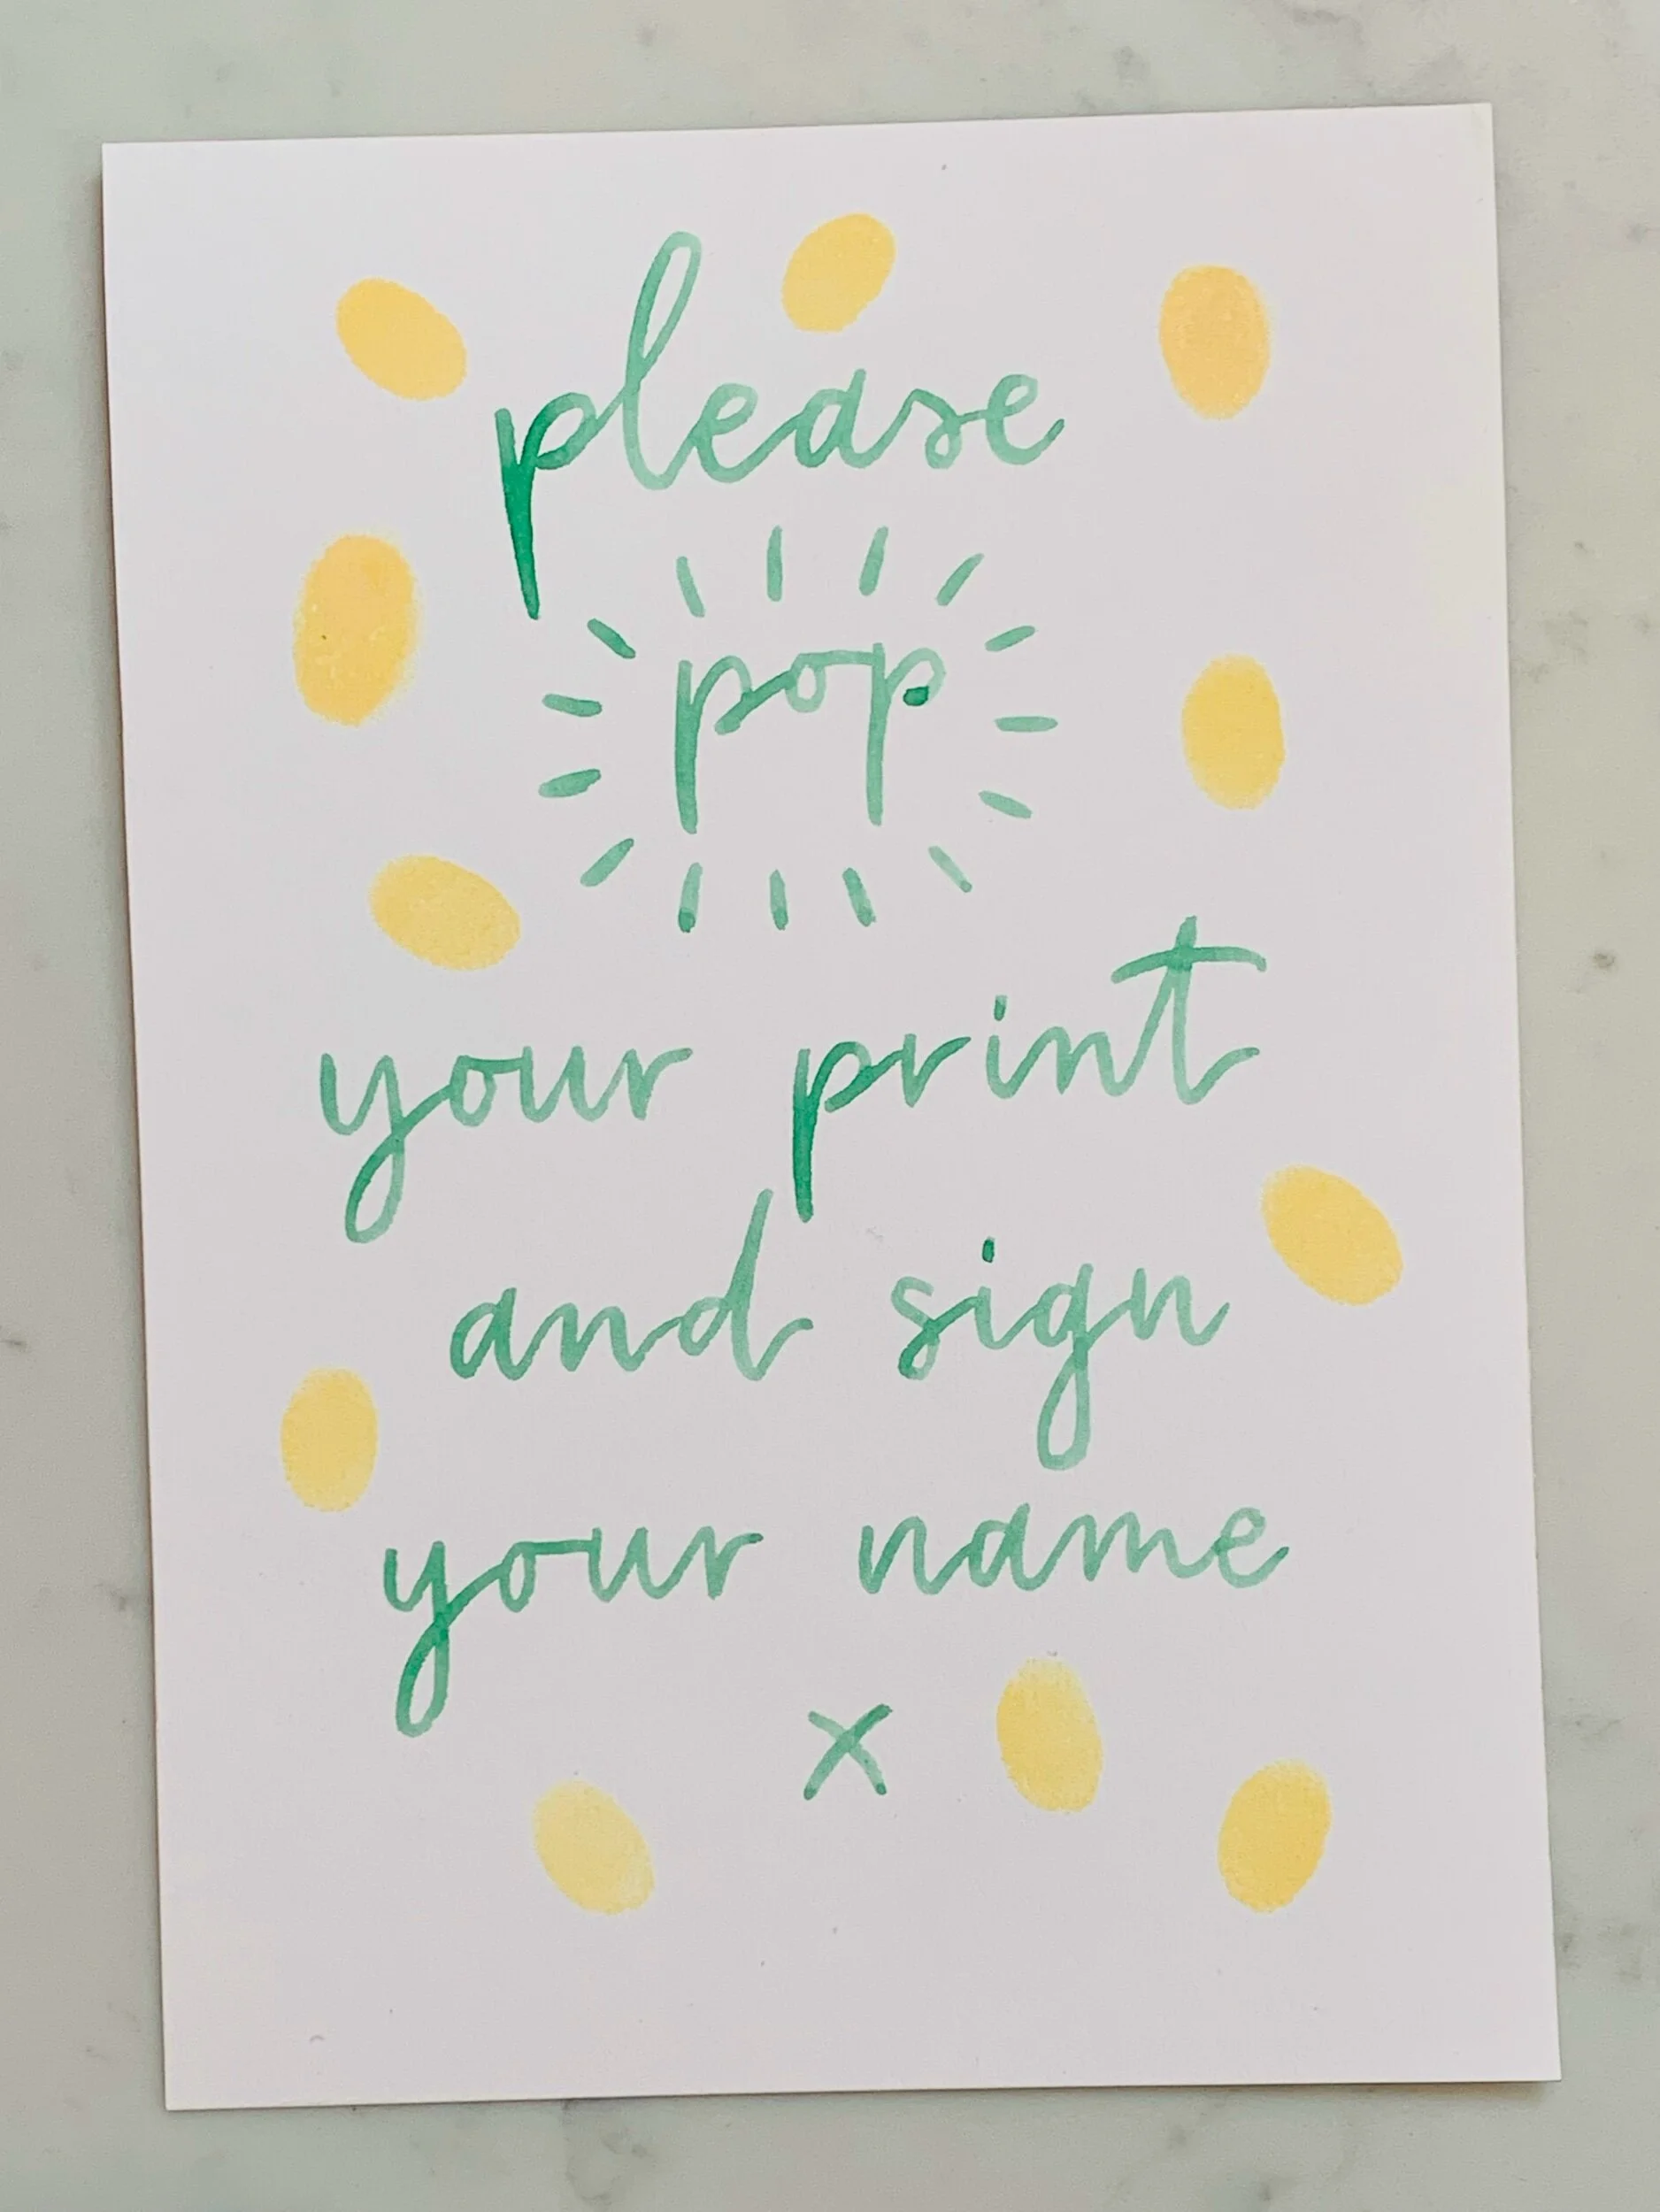 please
pop
your print
and sign
your name
x